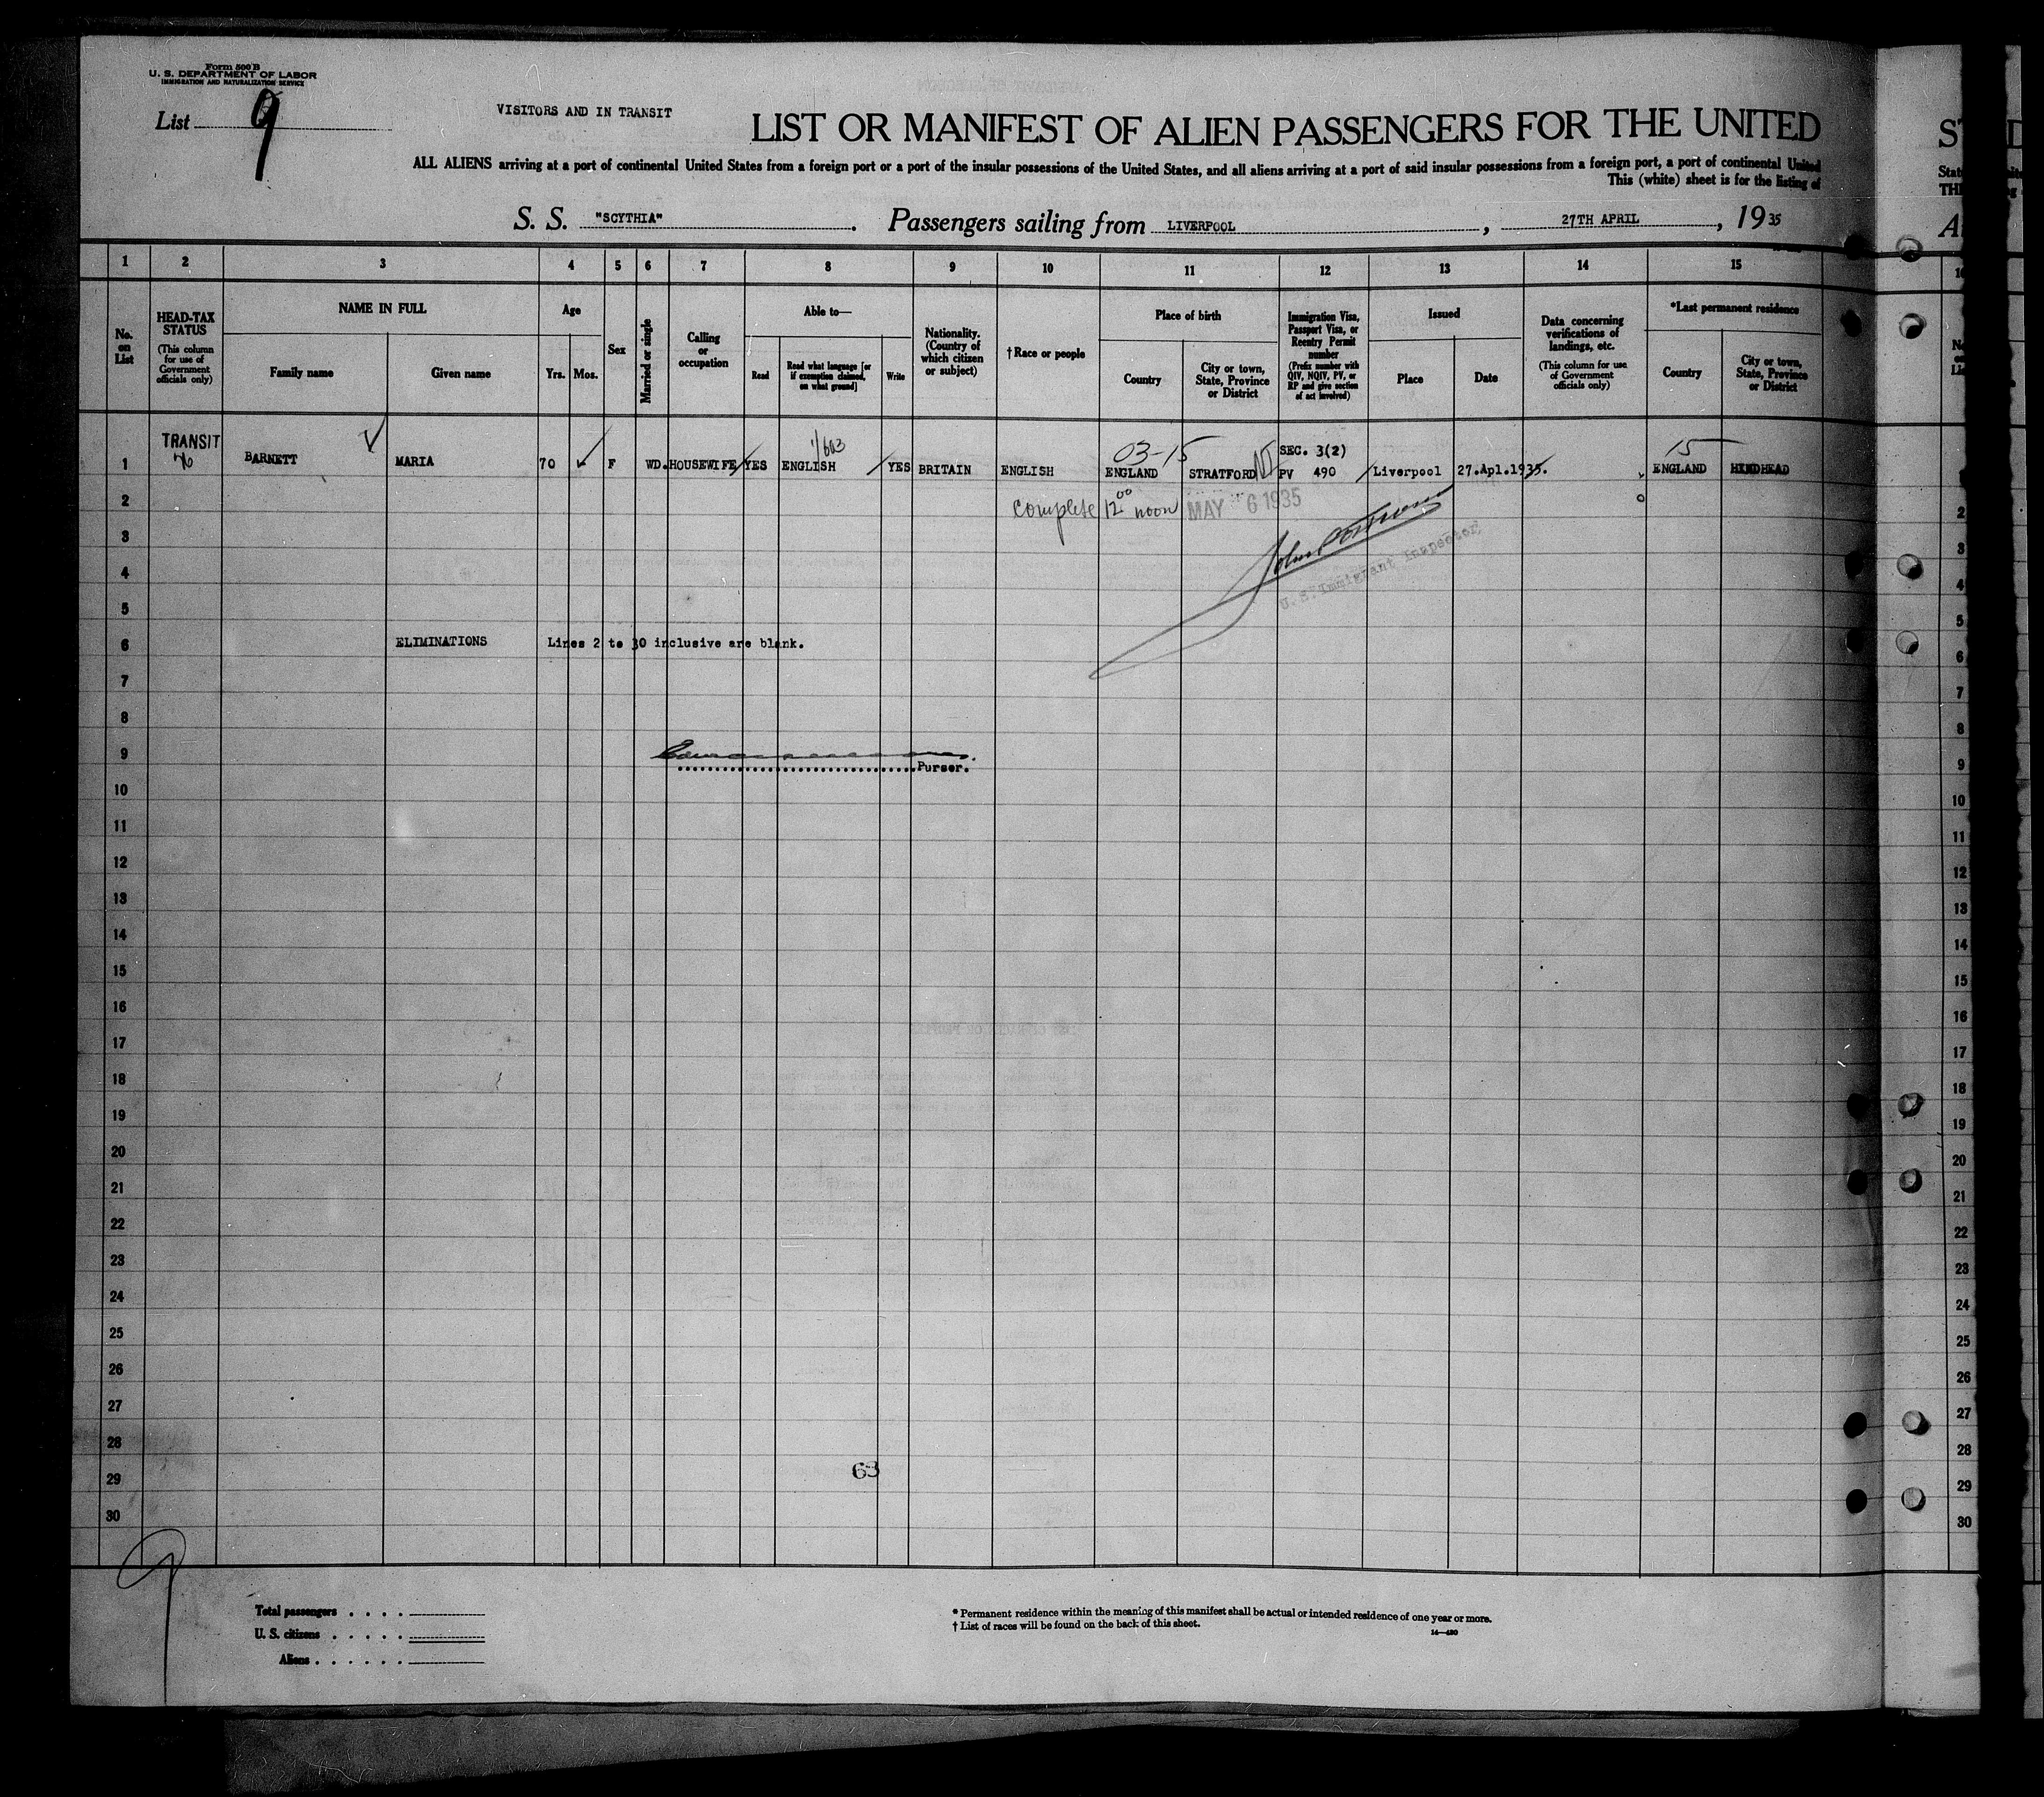 Form 500 B
U. S. DEPARTMENT OF LABOR
IMMIGRATION AND NATURALIZATION SERVICE
List 9
VISITORS AND IN TRANSIT
LIST OR MANIFEST OF ALIEN PASSENGERS FOR THE UNITED
ALL ALIENS arriving at a port of continental United States from a foreign port or a port of the insular possessions of the United States, and all aliens arriving at a port of said insular possessions from a foreign port, a port of continental United
This (white) sheet is for the listing of
S. S. "SCYTHIA". Passengers sailing from LIVERPOOL, 27TH APRIL, 1935
1 2 3 4 5 6 7 8 9 10 11 12 13 14 15
No. on List
HEAD-TAX STATUS (This column for use of Government officials only)
NAME IN FULL
Family name
Given name
Age
Yrs. Mos.
Sex
Married or single
Calling or occupation
Able to—
Read
Read what language [or if exemption claimed, on what ground]
Write
Nationality. (Country of which citizen or subject)
†Race or people
Place of birth
Country
City or town, State, Province or District
Immigration Visa, Passport Visa, or Reentry Permit number (Prefix number with QIV, NQIV, PV, or RP and give section of act involved)
Issued
Place
Date
Data concerning verifications of landings, etc. (This column for use of Government officials only)
*Last permanent residence
Country
City or town, State, Province or District
TRANSIT
03-15
SEC. 3(2)
15
1 BARNETT MARIA 70 F WD. HOUSEWIFE YES ENGLISH YES BRITAIN ENGLISH ENGLAND STRATFORD PV 490 Liverpool 27.Apl.1935. ENGLAND HINDHEAD
2 complete 12 00 noon MAY 6 1935
3
4 U. S. Immigrant Inspector.
5
6 ELIMINATIONS Lines 2 to 30 inclusive are blank.
7
8
9 Purser.
10
11
12
13
14
15
16
17
18
19
20
21
22
23
24
25
26
27
28
29 63
30
9
Total passengers
U. S. citizens
Aliens
* Permanent residence within the meaning of this manifest shall be actual or intended residence of one year or more.
† List of races will be found on the back of this sheet.
14—430
2
3
4
5
6
7
8
9
10
11
12
13
14
15
16
17
18
19
20
21
22
23
24
25
26
27
28
29
30